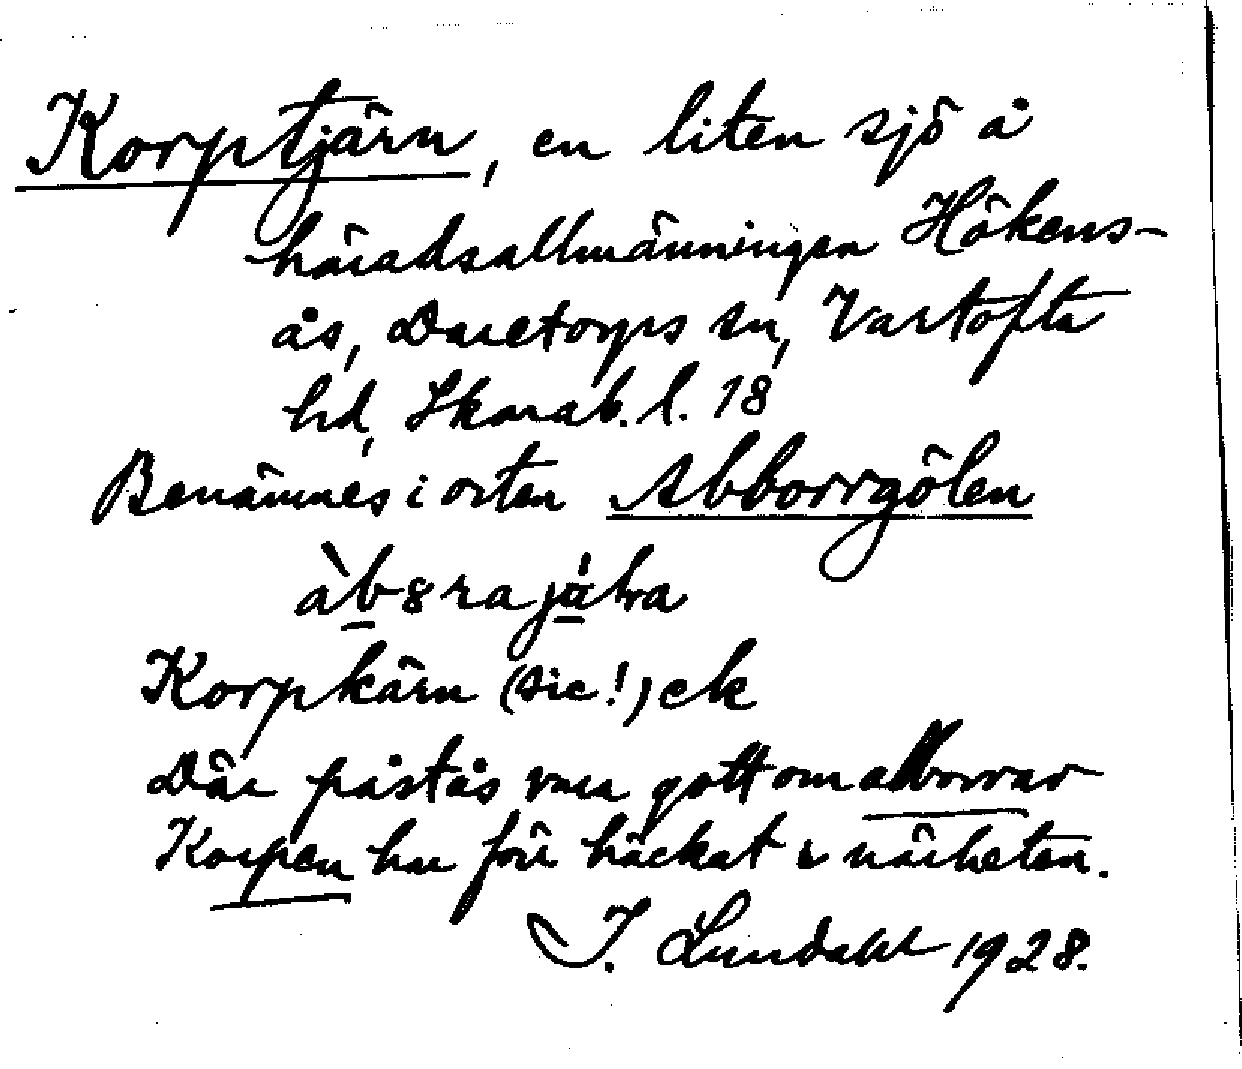 Korptjärn, en liten sjö å
häradsallmänningen Hökens-
ås, Daretorps sn, Vartofta
hd, Skarab. l. 18
Benämnes i orten Abborrgölen
àb8ra jöḷa
Korpkärn (sic!) ek
Där påstås vara gott om abborrar
Korpen har förr häckat i närheten.
I. Lundahl 1928.